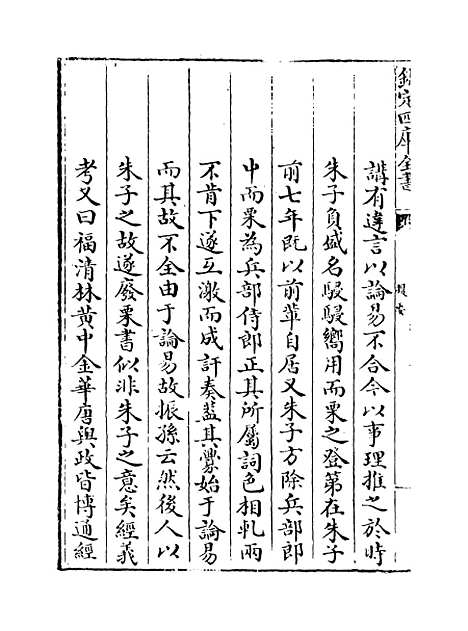 欽定四庫全書
提要
講有違言以論易不合今以事理推之於時
朱子負盛名駸駸嚮用而栗之登第在朱子
前七年既以前輩自居又朱子方除兵部郎
中而栗為兵部侍郎正其所屬詞色相軋兩
不肯下遂互激而成訐奏蓋其釁始于論易
而其故不全由于論易故振孫云然後人以
朱子之故遂廢栗書似非朱子之意矣經義
考又曰福清林黄中金華唐與政皆博通經